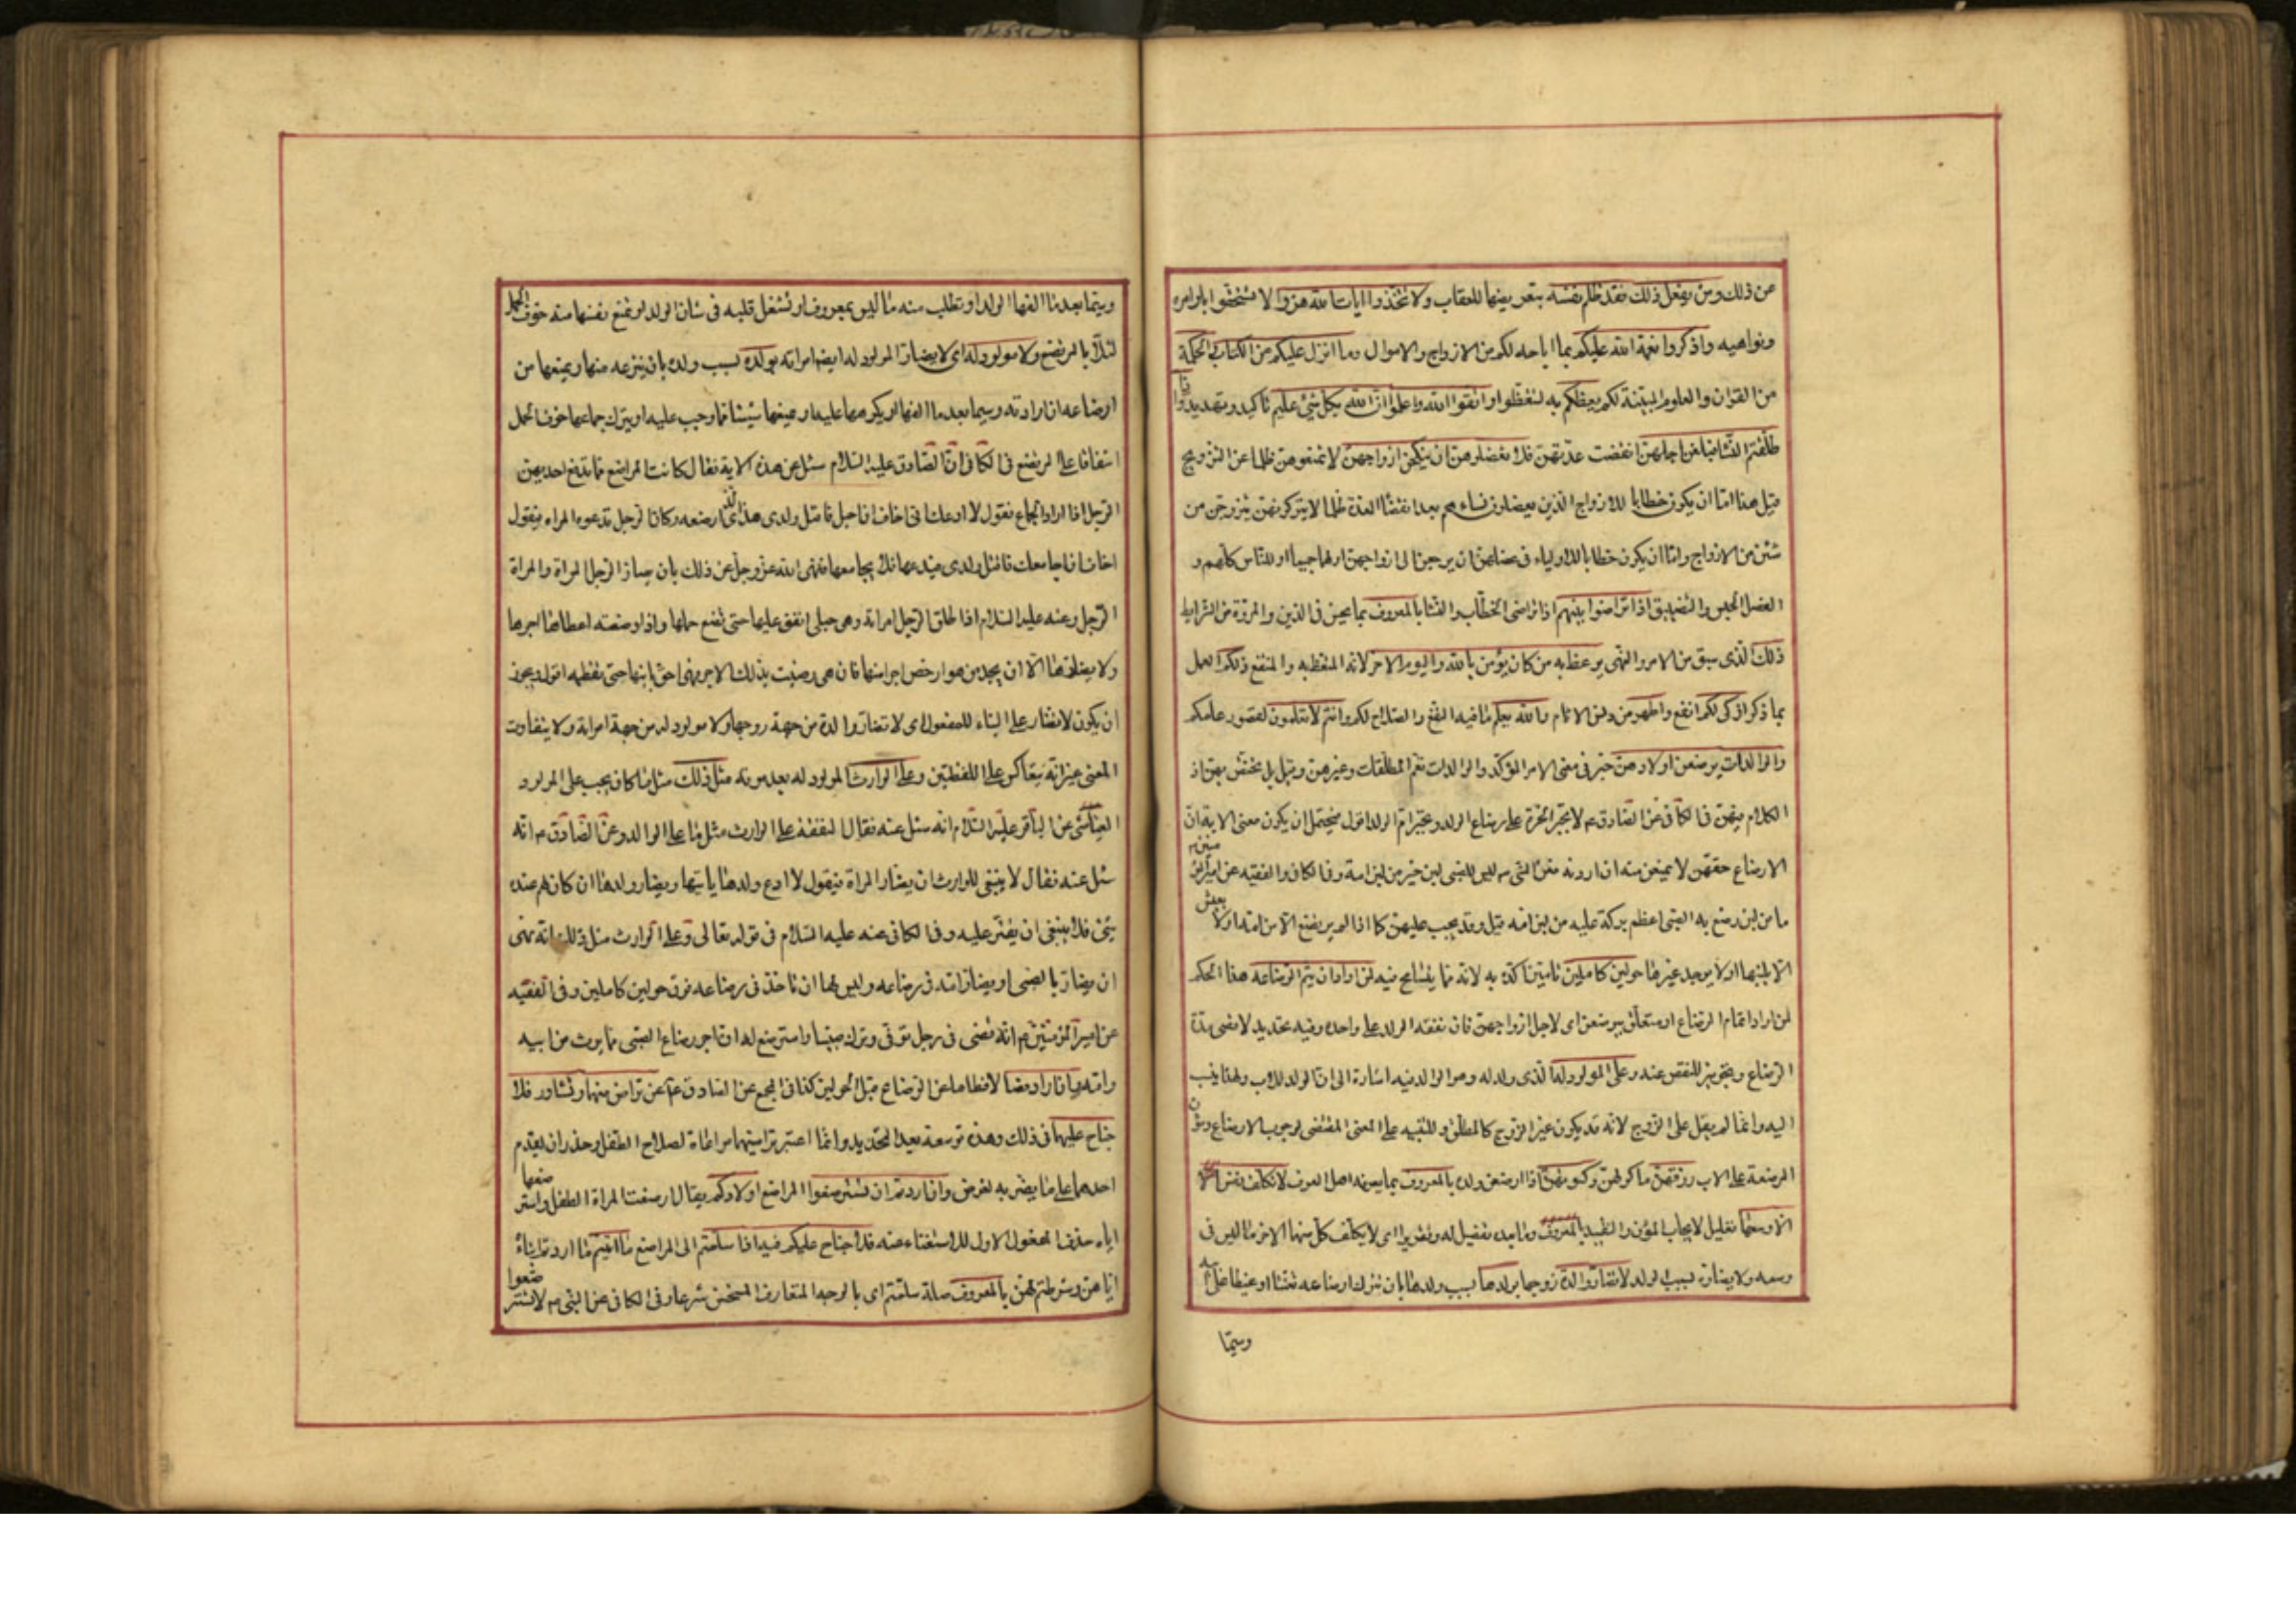 من ذلك ومن يفعل ذلك فقد ظلم نفسه بتعريضها للعقاب ولا تتخذوا ايات الله هزوا لا تستخفوا باوامره
ونواهيه واذكروا نعمة الله عليكم بما اباحه لكم من الازواج والاموال وما انزل عليكم من الكتاب والحكمة
من القران والعلوم المبينة لكم يعظكم به لتتعظوا واتقوا الله واعلموا ان الله بكل شئ عليم تاكيد وتهديد واذا
طلقتم النساء فبلغن اجلهن انقضت عدتهن فلا تعضلوهن ان ينكحن ازواجهن لا تمنعوهن ظلما عن التزوج
قيل هذا اما ان يكون خطابا للازواج الذين يعضلون نساءهم بعد انقضاء العدة ظلما لا يتركونهن يتزوجن من
شئن من الازواج واما ان يكون خطابا للاولياء فى عضلهن ان يرجعن الى ازواجهن او لهما جميعا او للناس كلهم و
العضل الحبس والتضييق اذا تراضوا بينهم اذا تراضى الخطاب والنساء بالمعروف بما يحسن فى الدين والمروة من الشرايط
ذلك الذى سبق من الامر والنهى يوعظ به من كان يؤمن بالله واليوم الاخر لانه المتعظ به والمنتفع ذلكم العمل
بما ذكر ازكى لكم انفع واطهر من دنس الاثام والله يعلم ما فيه النفع والصلاح لكم وانتم لا تعلمون لقصور علمكم
والوالدات يرضعن اولادهن خبر فى معنى الامر المؤكد والوالدات تعم المطلقات وغيرهن وقيل بل يختص بهن اذ
الكلام فيهن فى الكافى عن الصادق ع لا تجبر الحرة على رضاع الولد وتجبر ام الولد اقول فيحتمل ان يكون معنى الاية ان
الارضاع حقهن لا يمنعن منه ان اردنه فعن النبى ص ليس للصبى لبن خير من لبن امه وفى الكافى والفقيه عن امير المؤمنين ع
ما من لبن رضع به الصبى اعظم بركة عليه من لبن امه قيل وقد يجب عليهن كما اذا لم يرتضع الا من امه او لا يعيش
الا بلبنها او لا يوجد غيرها حولين كاملين تامين اكده به لانه مما يتسامح فيه لمن اراد ان يتم الرضاعة هذا الحكم
لمن اراد اتمام الرضاع او متعلق بيرضعن اى لاجل ازواجهن فان نفقة الولد على والده وفيه تحديد لاقصى مدة
الرضاع وتجويز للنقص عنه وعلى المولود له الذى ولد له وهو الوالد فيه اشارة الى ان الولد للاب ولهذا ينسب
اليه وانما لم يقل على الزوج لانه قد يكون غير الزوج كالمطلق وللتنبيه على المعنى المقتضى لوجوب الارضاع ومؤن
المرضعة على الاب رزقهن ماكولهن وكسوتهن اذا ارضعن ولده بالمعروف بما يعرفه اهل العرف لا تكلف نفس الا
الا وسعها تعليل لايجاب المؤن والتقييد بالمعروف وما بعده تفصيل له وتقرير اى لا يكلف كل منهما الاخر ما ليس فى
وسعه ولا يضاره بسبب الولد لا تضار والدة زوجها بولدها بسبب ولدها بان تترك ارضاعه تعنتا او غيظا على ابيه
وسيما
وسيما بعد ما الفها الولد او تطلب منه ما ليس بمعروف او تشغل قلبه فى شان الولد او تمنع نفسها منه خوف الحمل
لئلا يضر بالمرتضع ولا مولود له اى لا يضار المولود له ايضا امراته بولده بسبب ولده بان ينزعه منها ويمنعها من
ارضاعه ان ارادته وسيما بعد ما الفها او يكرهها عليه او يمنعها شيئا مما وجب عليه او يترك جماعها خوف الحمل
اشفاقا على المرتضع فى الكافى ان الصادق عليه السلام سئل عن هذه الاية فقال كانت المراضع مما تدفع احديهن
الرجل اذا اراد الجماع فتقول لا ادعك انى اخاف ان احبل فاقتل ولدى هذا الذى ارضعه وكان الرجل تدعوه المراة فيقول
اخاف ان اجامعك فاقتل ولدى فيدعها فلا يجامعها فنهى الله عز وجل عن ذلك بان يضار الرجل المراة والمراة
الرجل وعنه عليه السلام اذا طلق الرجل امراته وهى حبلى انفق عليها حتى تضع حملها واذا وضعته اعطاها اجرها
ولا يضارها الا ان يجد من هو ارخص اجرا منها فان هى رضيت بذلك الاجر فهى احق بابنها حتى تفطمه اقول ويجوز
ان يكون لا تضار على البناء للمفعول اى لا تضار والدة من جهة زوجها ولا مولود له من جهة امراته ولا يتفاوت
المعنى غير انه يتعاكس على اللفظين وعلى الوارث المولود له بعد موته مثل ذلك مثل ما كان يجب على المولود
العياشى عن الباقر عليه السلام انه سئل عنه فقال النفقة على الوارث مثل ما على الوالد وعن الصادق ع انه
سئل عنه فقال لا ينبغى للوارث ان يضار المراة فيقول لا ادع ولدها ياتيها ويضار ولدها ان كان لهم عنده
شئ فلا ينبغى ان يقتر عليه وفى الكافى عنه عليه السلام فى قوله تعالى وعلى الوارث مثل ذلك انه نهى
ان يضار بالصبى او يضار امه فى رضاعه وليس لها ان تاخذ فى رضاعه فوق حولين كاملين وفى الفقيه
عن امير المؤمنين ع انه قضى فى رجل توفى وترك صبيا واسترضع له ان اجر رضاع الصبى مما يرث من ابيه
وامه فان ارادا فصالا فطاما عن الرضاع قبل الحولين كذا فى المجمع عن الصادق ع عن تراض منهما وتشاور فلا
جناح عليهما فى ذلك وهذه توسعة بعد التحديد وانما اعتبر تراضيهما مراعاة لصلاح الطفل وحذرا ان يقدم
احدهما على ما يضر به لغرض وان اردتم ان تسترضعوا المراضع اولادكم يقال ارضعت المراة الطفل واسترضعها
اياه حذف المفعول الاول للاستغناء عنه فلا جناح عليكم فيه اذا سلمتم الى المراضع ما اتيتم ما اردتم ايتاءه
اياهن وشرطتم لهن بالمعروف صلة سلمتم اى بالوجه المتعارف المستحسن شرعا وفى الكافى عن النبى ص لا تسترضعوا